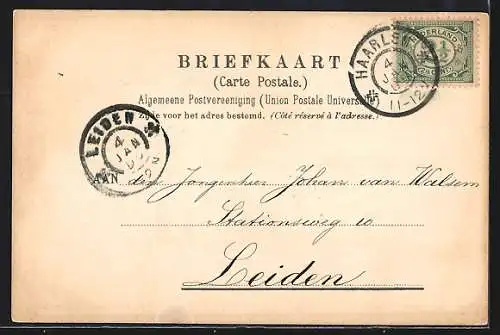 BRIEFKAART
(Carte Postale.)
Algemeene Postvereeniging (Union Postale Universelle)
Zijde voor het adres bestemd. (Côté réservé à l'adresse.)
HAARLEM
4
JAN
11-12
NEDERLAND
LEIDEN
4
JAN
AAN den Jongenheer Johan van Walsem
Stationsweg 10
Leiden